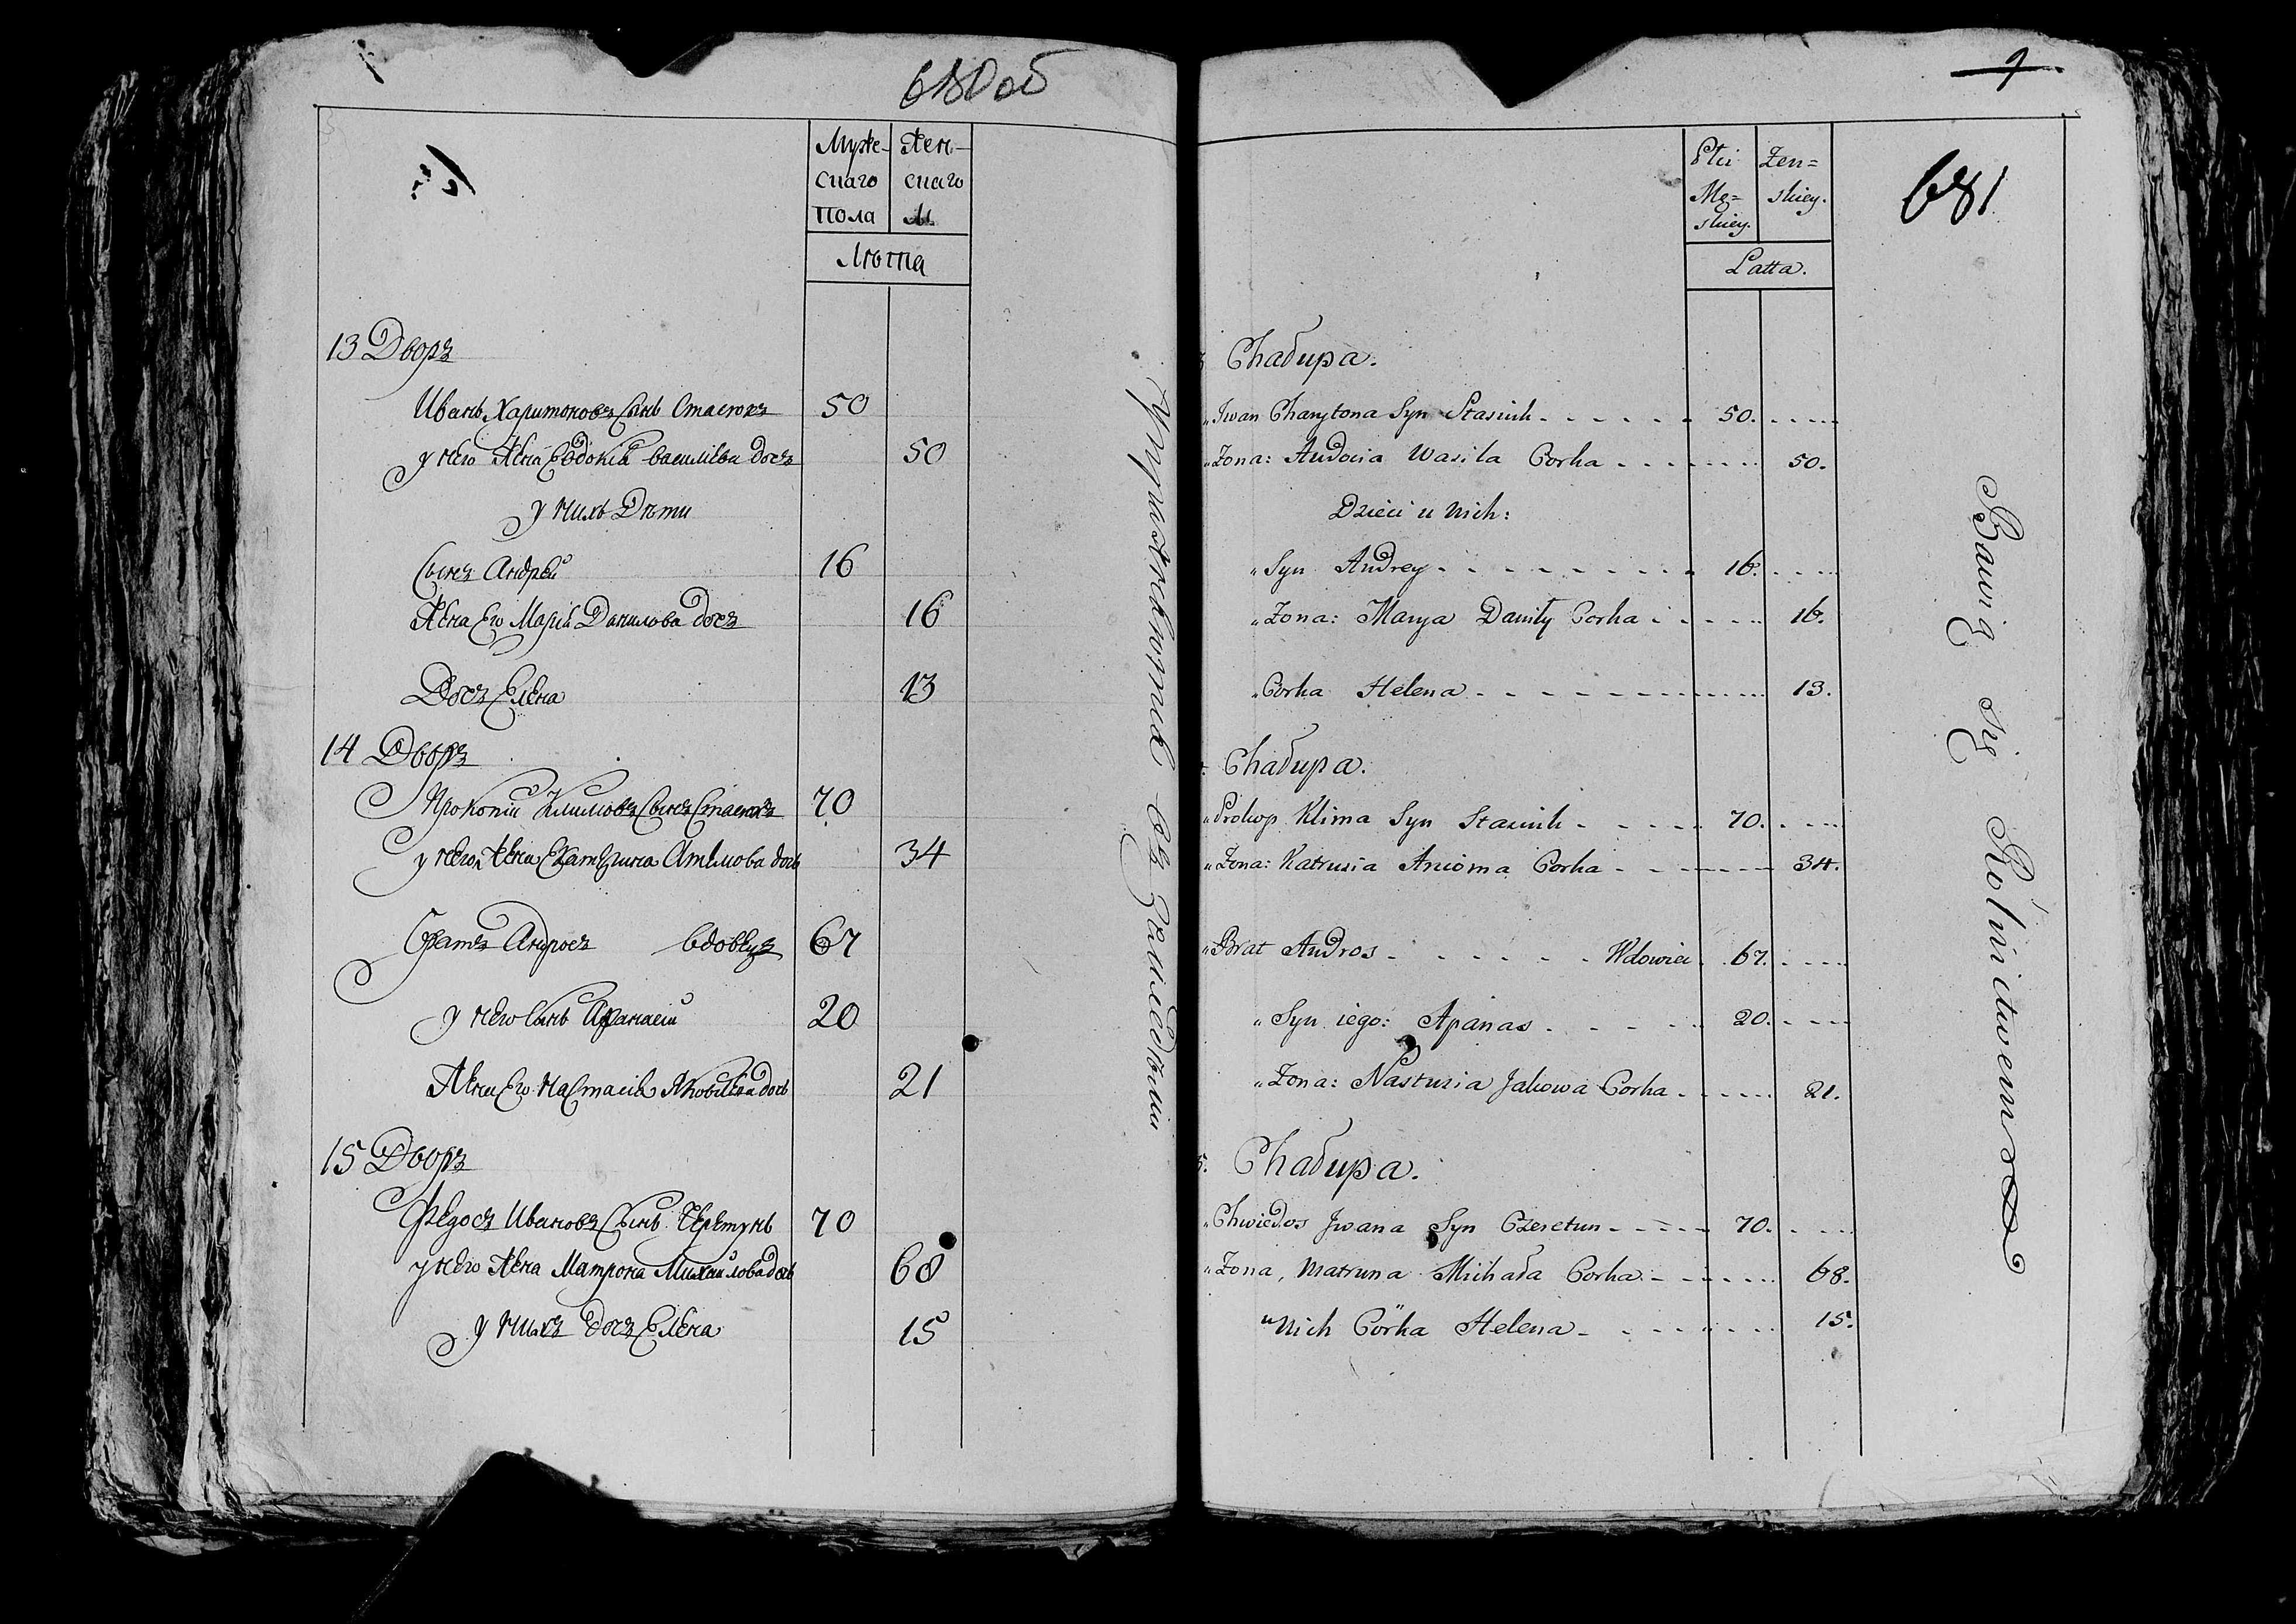 680 об
Муже-
скаго
пола
Жен-
скаго
Лѣта
13 Дворъ
Иванъ Харитоновъ Сынъ Стасюкъ 50
у него Жена Евдокія василіева дочъ 50
у нихъ Дѣти
Сынъ Андрей 16
Жена Его Марія Данилова дочъ 16
Дочъ Елена 13
14 Дворъ
Прокопій Климовъ Сынъ Стасюкъ 70
у него Жена Екатерина 34
Братъ Андросъ вдовецъ 67
у него Сынъ Афанасій 20
Жена Его Настасія Яковлева дочь 21
15 Дворъ
Федосъ Ивановъ Сынъ Черетунъ 70
у него Жена Матрона Михайлова дочь 68
у нихъ дочъ Елена 15
въ земледѣліи
9
681
Płci
Mę=
skiey.
Zen=
skiey.
Latta.
Chałupa.
„Jwan Charytona Syn Stasiuk - - - - - - 50. - - - -
„Zona: Audocia Wasila Corka - - - - - - - 50.
Dzieci u nich:
„Syn Andrey - - - - - - - - - 16. - - - -
„Zona: Marya Daniły Corka - - - - - 16.
„Corka Helena - - - - - - - - - 13.
Chałupa.
„Prokop Klima Syn Stasiuk - - - - - 70. - - - -
„Zona: Katrusia Corka - - - - - - 34.
„Brat Andros - - - - - - Wdowiec . 67. - - - -
„Syn iego: Apanas - - - - - 20. - - - -
„Zona: Nastusia Jakowa Corka - - - - - 21.
5. Chałupa.
„Chwiedos Jwana Syn Czeretun - - - - - 70. - - - -
„Zona, Matruna Michała Corka - - - - - 68.
u Nich Córka Helena - - - - - - - 15.
Bawią się Rolnictwem